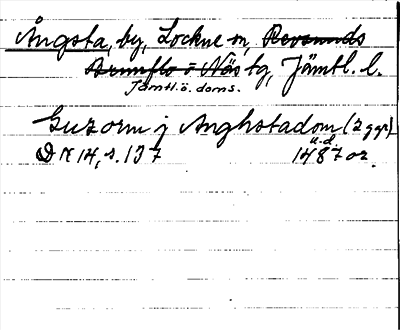 Ångsta, by, Lockne sn, Revsunds
Brunflo o Näs tg, Jämtl. l.
Jämtl.ö. doms.
Guzorm j Anghstadom (2 ggr)
u.d.
DN 14, s. 137 1487 or.